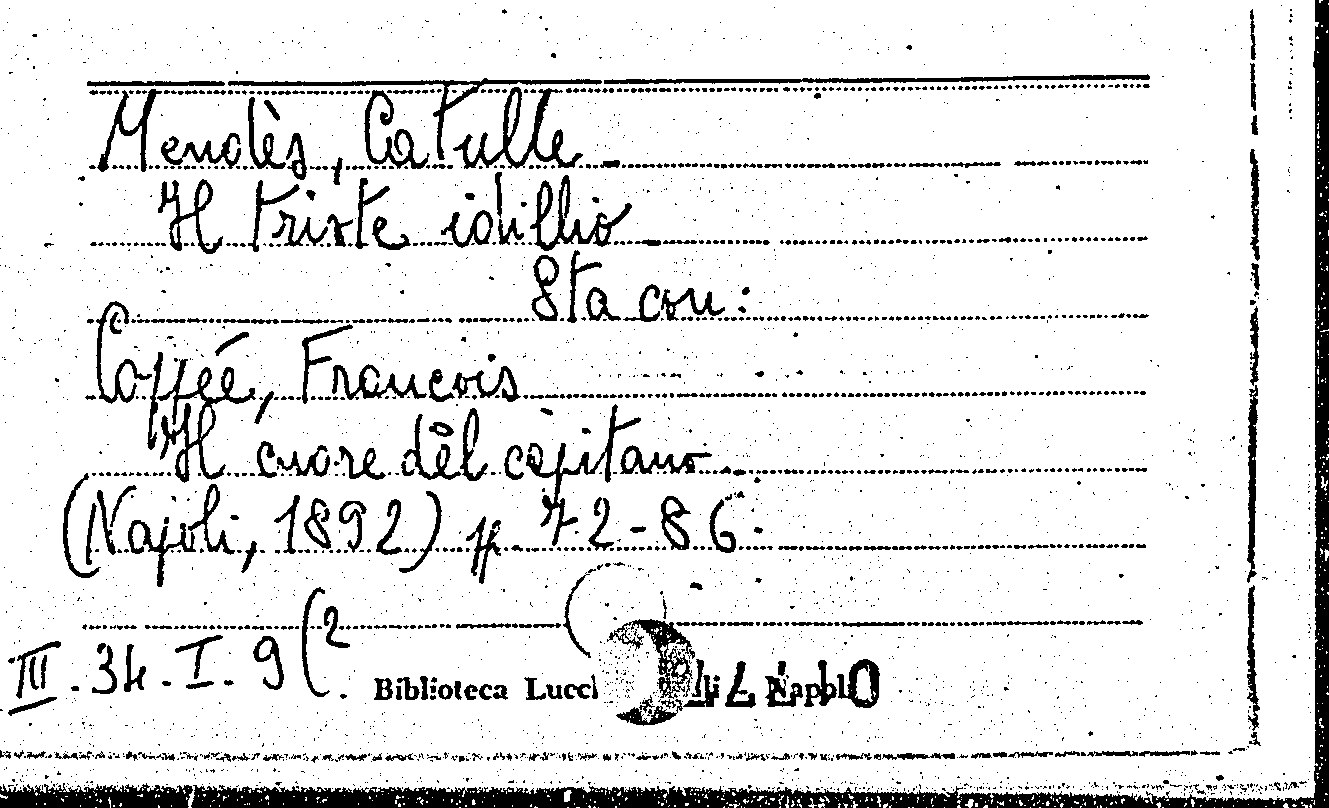 Mendès, Catulle.
Il triste idillio
Sta con:
Coppée, François
Il cuore del capitano.
(Napoli, 1892) p. 72-86.
III.34.I.9(2.
Biblioteca Lucch Napoli